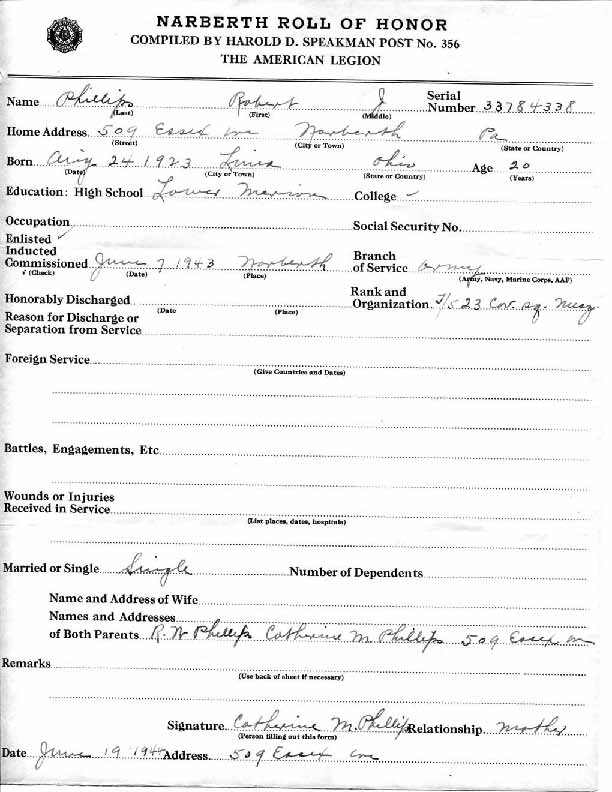 NARBERTH ROLL OF HONOR
COMPILED BY HAROLD D. SPEAKMAN POST No. 356
THE AMERICAN LEGION
Name Phillips Robert J Serial Number 33784338
(Last) (First) (Middle)
Home Address 509 Essex ave Narberth Pa
(Street) (City or Town) (State or Country)
Born Aug 24 1923 Lima Ohio Age 20
(Date) (City or Town) (State or Country) (Years)
Education: High School Lower Merion College ✓
Occupation Social Security No.
Enlisted ✓
Inducted
Commissioned June 7 1943 Narberth Branch of Service Army
√ (Check) (Date) (Place) (Army, Navy, Marine Corps, AAF)
Honorably Discharged Rank and Organization T/5 23 Cav. sq.
(Date (Place)
Reason for Discharge or
Separation from Service
Foreign Service
(Give Countries and Dates)
Battles, Engagements, Etc
Wounds or Injuries
Received in Service
(List places, dates, hospitals)
Married or Single Single Number of Dependents
Name and Address of Wife
Names and Addresses
of Both Parents R. W Phillips Catherine M Phillips 509 Essex ave
Remarks
(Use back of sheet if necessary)
Signature Catherine M. Phillips Relationship mother
(Person filling out this form)
Date June 19 Address 509 Essex ave